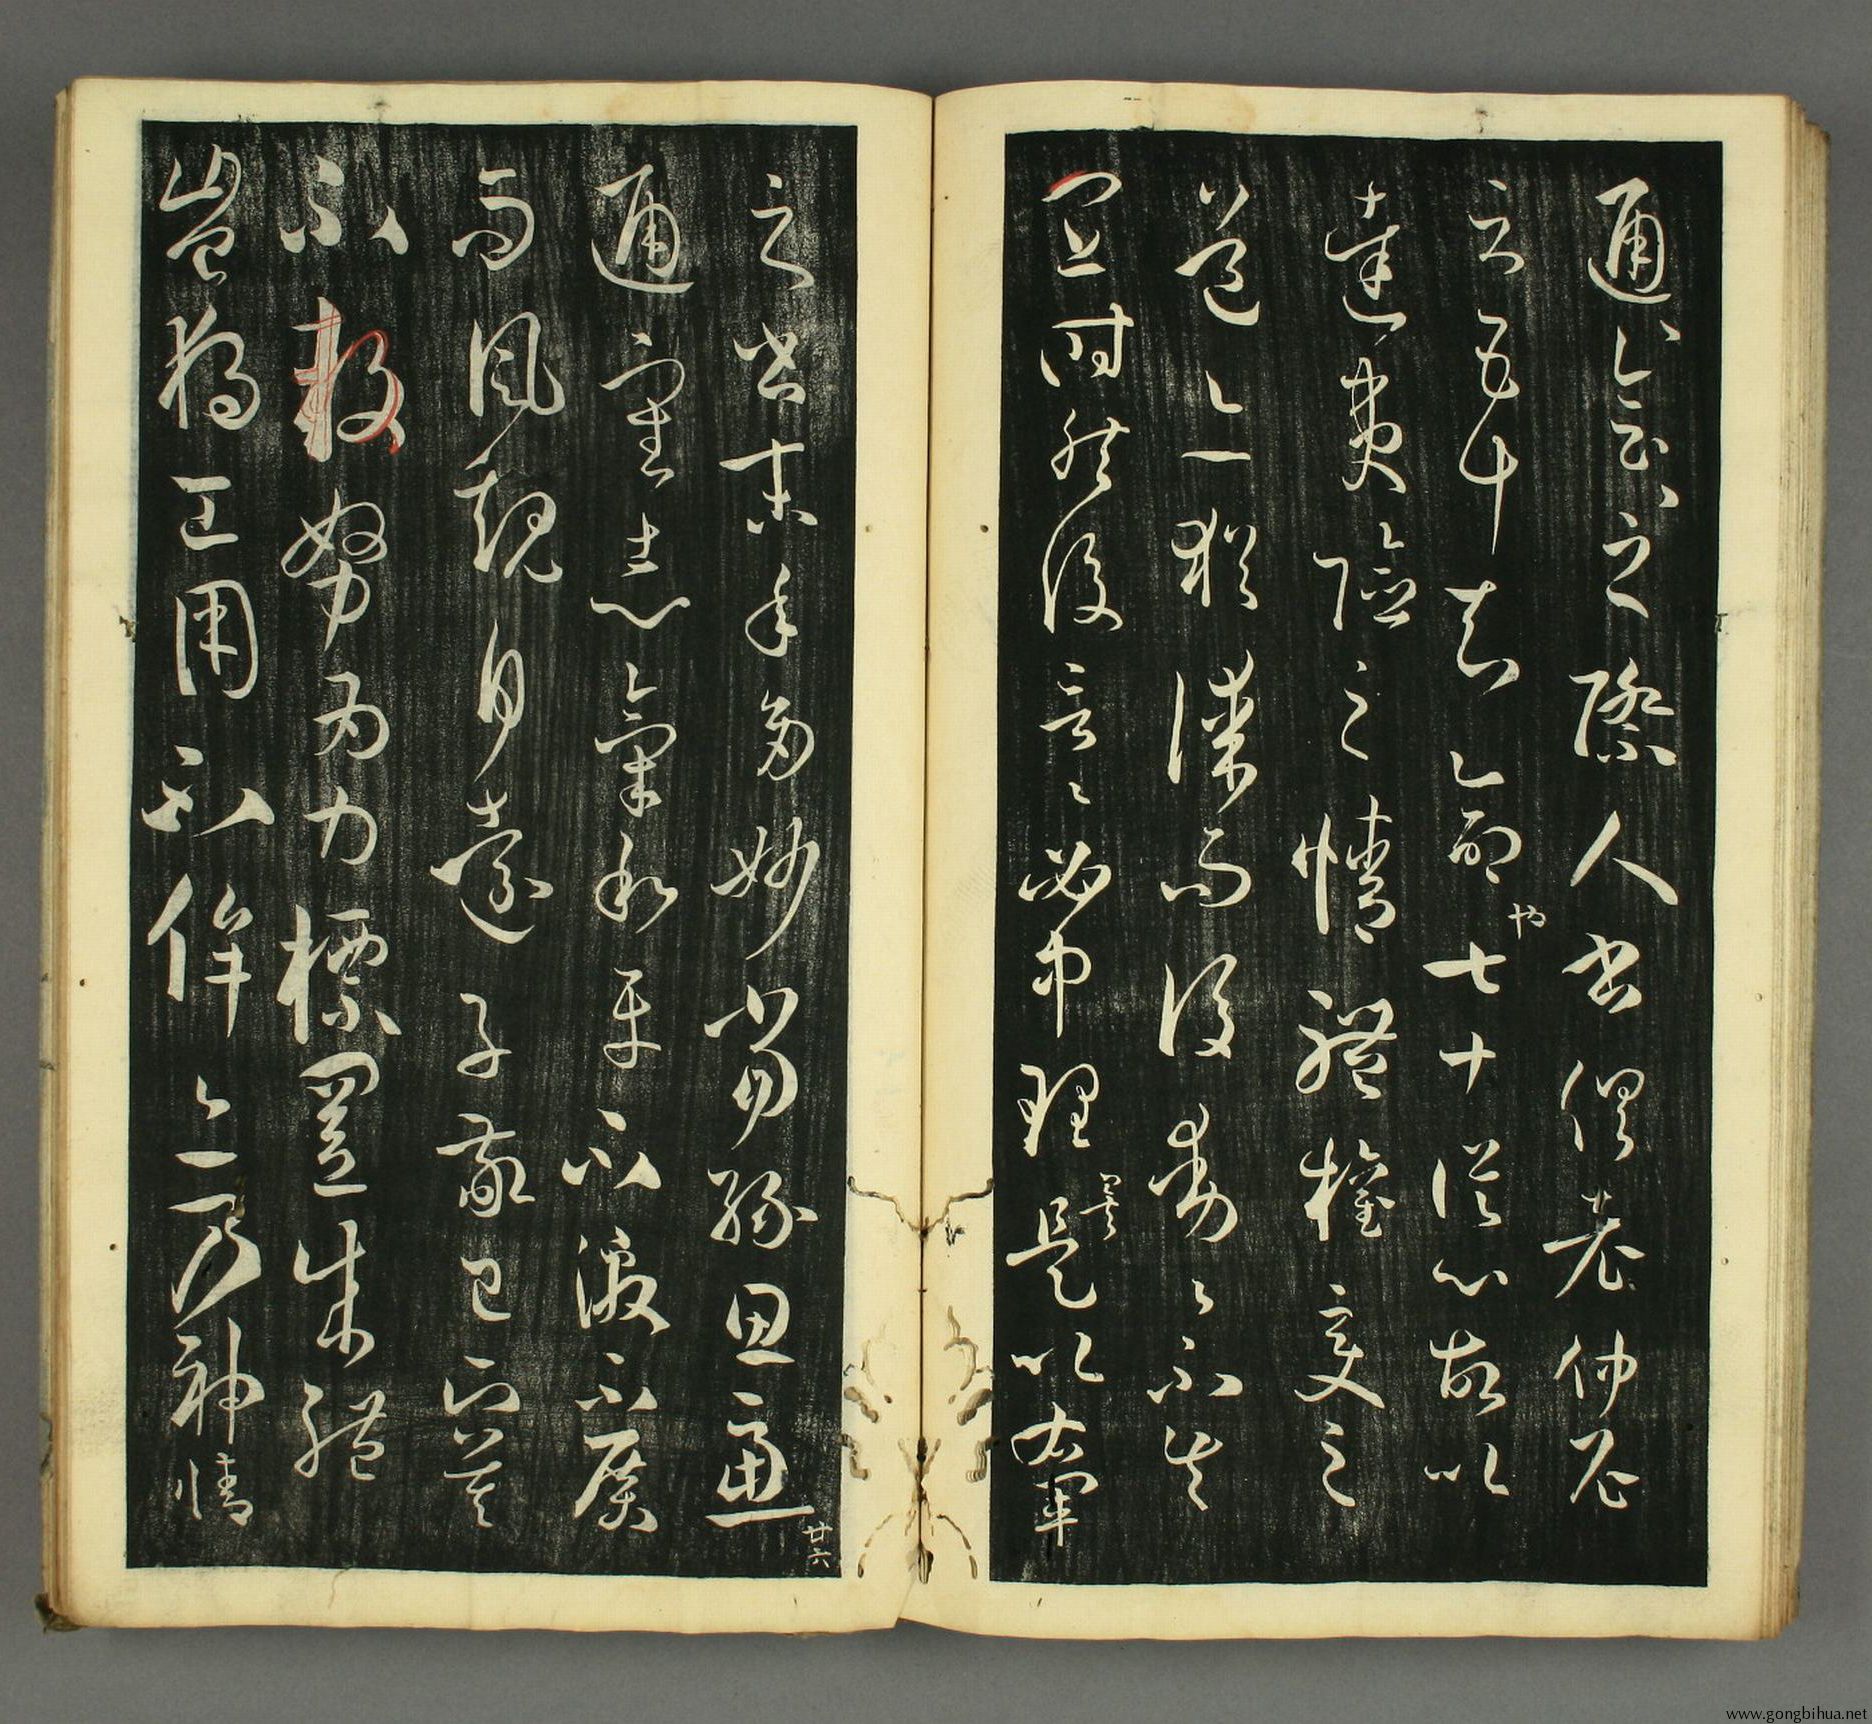 通〻會〻之際人書俱老仲尼
云五十知命也七十從心故以
達夷險之情體權變之
道亦猶謀而後動〻不失
宜時然後言〻必中理矣是以右軍
之書末年多妙當緣思慮
廿六
通審志氣和平不激不厲
而風規自遠子敬已下莫
不鼓努為力標置成體
豈獨工用不侔亦乃神情
www.gongbihua.net